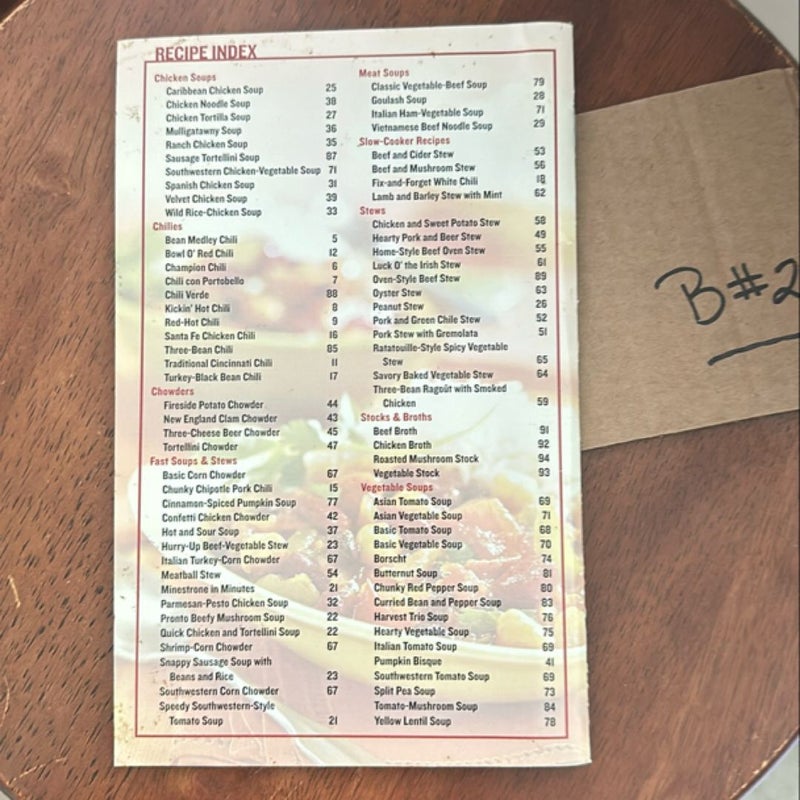 RECIPE INDEX
Chicken Soups
Caribbean Chicken Soup 25
Chicken Noodle Soup 38
Chicken Tortilla Soup 27
Mulligatawny Soup 36
Ranch Chicken Soup 35
Sausage Tortellini Soup 87
Southwestern Chicken-Vegetable Soup 71
Spanish Chicken Soup 31
Velvet Chicken Soup 39
Wild Rice-Chicken Soup 33
Chilies
Bean Medley Chili 5
Bowl O' Red Chili 12
Champion Chili 6
Chili con Portobello 7
Chili Verde 88
Kickin' Hot Chili 8
Red-Hot Chili 9
Santa Fe Chicken Chili 16
Three-Bean Chili 85
Traditional Cincinnati Chili 11
Turkey-Black Bean Chili 17
Chowders
Fireside Potato Chowder 44
New England Clam Chowder 43
Three-Cheese Beer Chowder 45
Tortellini Chowder 47
Fast Soups & Stews
Basic Corn Chowder 67
Chunky Chipotle Pork Chili 15
Cinnamon-Spiced Pumpkin Soup 77
Confetti Chicken Chowder 42
Hot and Sour Soup 37
Hurry-Up Beef-Vegetable Stew 23
Italian Turkey-Corn Chowder 67
Meatball Stew 54
Minestrone in Minutes 21
Parmesan-Pesto Chicken Soup 32
Pronto Beefy Mushroom Soup 22
Quick Chicken and Tortellini Soup 22
Shrimp-Corn Chowder 67
Snappy Sausage Soup with
Beans and Rice 23
Southwestern Corn Chowder 67
Speedy Southwestern-Style
Tomato Soup 21
Meat Soups
Classic Vegetable-Beef Soup 79
Goulash Soup 28
Italian Ham-Vegetable Soup 71
Vietnamese Beef Noodle Soup 29
Slow-Cooker Recipes
Beef and Cider Stew 53
Beef and Mushroom Stew 56
Fix-and-Forget White Chili 18
Lamb and Barley Stew with Mint 62
Stews
Chicken and Sweet Potato Stew 58
Hearty Pork and Beer Stew 49
Home-Style Beef Oven Stew 55
Luck O' the Irish Stew 61
Oven-Style Beef Stew 89
Oyster Stew 63
Peanut Stew 26
Pork and Green Chile Stew 52
Pork Stew with Gremolata 51
Ratatouille-Style Spicy Vegetable
Stew 65
Savory Baked Vegetable Stew 64
Three-Bean Ragoût with Smoked
Chicken 59
Stocks & Broths
Beef Broth 91
Chicken Broth 92
Roasted Mushroom Stock 94
Vegetable Stock 93
Vegetable Soups
Asian Tomato Soup 69
Asian Vegetable Soup 71
Basic Tomato Soup 68
Basic Vegetable Soup 70
Borscht 74
Butternut Soup 81
Chunky Red Pepper Soup 80
Curried Bean and Pepper Soup 83
Harvest Trio Soup 76
Hearty Vegetable Soup 75
Italian Tomato Soup 69
Pumpkin Bisque 41
Southwestern Tomato Soup 69
Split Pea Soup 73
Tomato-Mushroom Soup 84
Yellow Lentil Soup 78
B#2